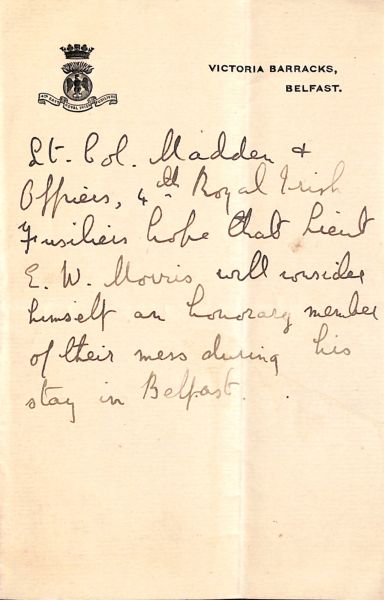 VICTORIA BARRACKS,
BELFAST.
Lt. Col. Madden &
Officers, 4th Royal Irish
Fusiliers hope that Lieut
E. W. Morris will consider
himself an honorary member
of their mess during his
stay in Belfast.